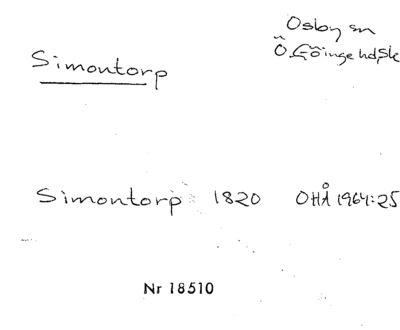 Osby sn
Ö. Göinge hd, Sk
Simontorp
Simontorp 1820 OHÅ 1964:25
Nr 18510